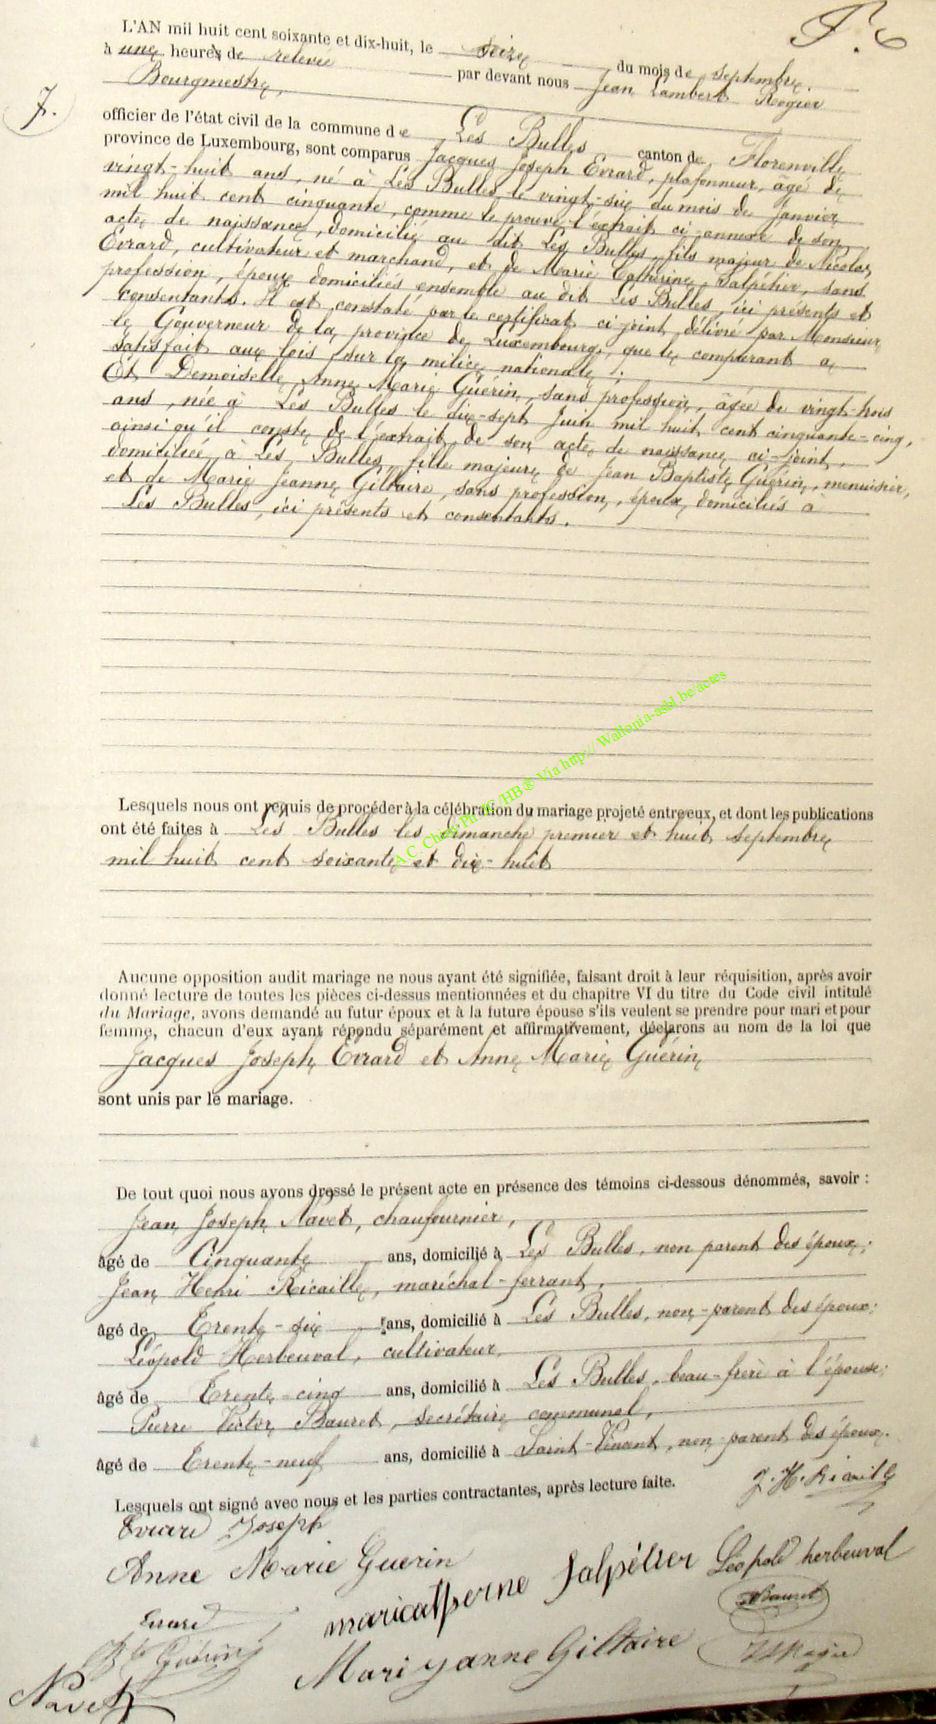 F. 6
L'AN mil huit cent soixante et dix-huit, le seize du mois de septembre
à une heures de relevée par devant nous Jean Lambert Rogier
Bourgmestre,
7.
officier de l'état civil de la commune de Les Bulles canton de Florenville
province de Luxembourg, sont comparus Jacques Joseph Evrard, plafonneur, âgé de
vingt-huit ans, né à Les Bulles le vingt-six du mois de Janvier
mil huit cent cinquante, comme le prouve l'extrait ci annexé de son
acte de naissance, domicilié au dit Les Bulles, fils majeur de Nicolas
Evrard, cultivateur et marchand, et de Marie Catherine Salpétier, sans
profession, époux domiciliés ensemble au dit Les Bulles, ici présents et
consentants. Il est constaté par le certificat ci-joint, délivré par Monsieur
le Gouverneur de la province de Luxembourg, que le comparant a
satisfait aux lois sur la milice nationale;
Et Demoiselle Anne Marie Guérin, sans profession, âgée de vingt-trois
ans, née à Les Bulles le dix-sept Juin mil huit cent cinquante-cinq,
ainsi qu'il conste de l'extrait de son acte de naissance ci-joint,
domiciliée à Les Bulles, fille majeure de Jean Baptiste Guérin, menuisier,
et de Marie Jeanne Giltaire, sans profession, époux domiciliés à
Les Bulles, ici présents et consentants.
Lesquels nous ont requis de procéder à la célébration du mariage projeté entre eux, et dont les publications
ont été faites à Les Bulles les dimanche premier et huit septembre
mil huit cent soixante et dix-huit
Aucune opposition audit mariage ne nous ayant été signifiée, faisant droit à leur réquisition, après avoir
donné lecture de toutes les pièces ci-dessus mentionnées et du chapitre VI du titre du Code civil intitulé
du Mariage, avons demandé au futur époux et à la future épouse s'ils veulent se prendre pour mari et pour
femme, chacun d'eux ayant répondu séparément et affirmativement, déclarons au nom de la loi que
Jacques Joseph Evrard et Anne Marie Guérin
sont unis par le mariage.
De tout quoi nous avons dressé le présent acte en présence des témoins ci-dessous dénommés, savoir :
Jean Joseph Navet, chaufournier,
âgé de Cinquante ans, domicilié à Les Bulles, non parent des époux;
Jean Henri Ricaille, maréchal-ferrant,
âgé de Trente-six ans, domicilié à Les Bulles, non-parent des époux;
Léopold Herbeuval, cultivateur,
âgé de Trente-cinq ans, domicilié à Les Bulles, beau-frère à l'épouse;
Pierre Victor Bauret, secrétaire communal,
âgé de Trente-neuf ans, domicilié à Saint-Vincent, non-parent des époux.
Lesquels ont signé avec nous et les parties contractantes, après lecture faite.
J. H. Ricaille
Evrard Joseph
Anne Marie Guerin
maricatherne Salpétier
Léopold herbeuval
Bauret
Evrard
Bte Guérin
Mariyanne Giltaire
Navet